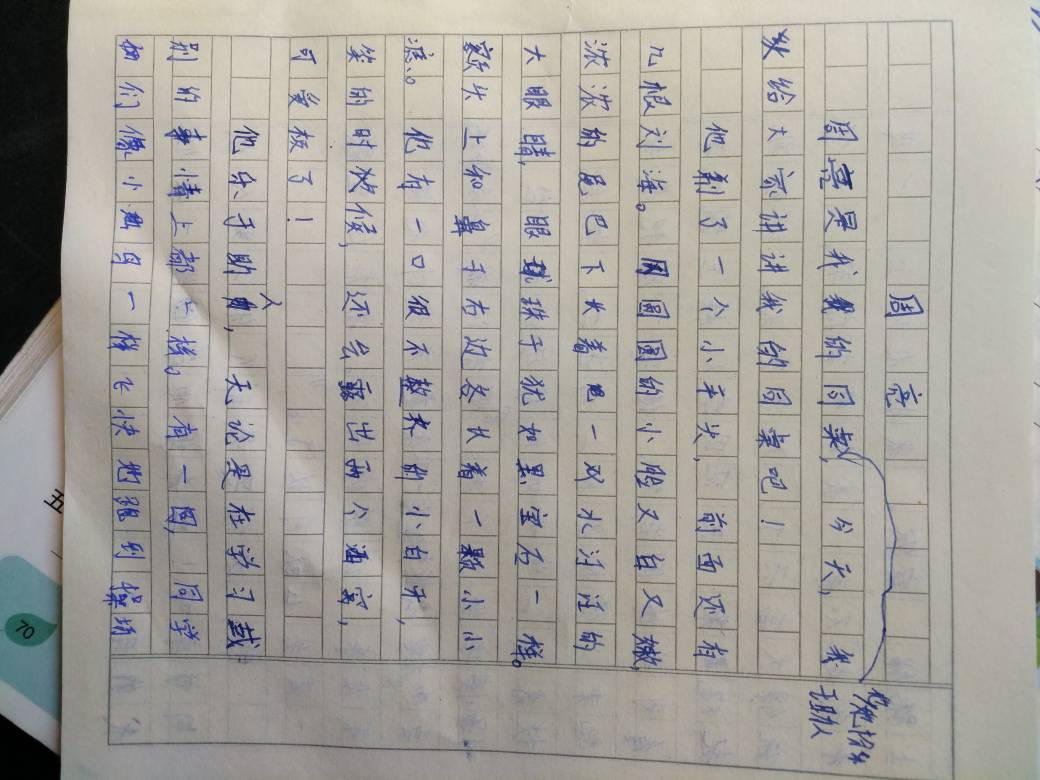 周亮
周亮是我的同桌,今天,我
来给大家讲讲我的同桌吧!
他剃了一个小平头,前面还有
几根刘海。圆圆的小脸又白又嫩,
浓浓的尾巴下长着一双水汪汪的
大眼睛,眼珠子犹如黑宝石一样。
额头上和鼻子右边各长着一颗小小
痣。他有一口很不整齐的小白牙,
笑的时候,还会露出两个酒窝,
可爱极了!
他乐于助人,无论是在学习或
别的事情上都一样。有一回,同学
们像小鸟一样飞快地跑到操场
70
五